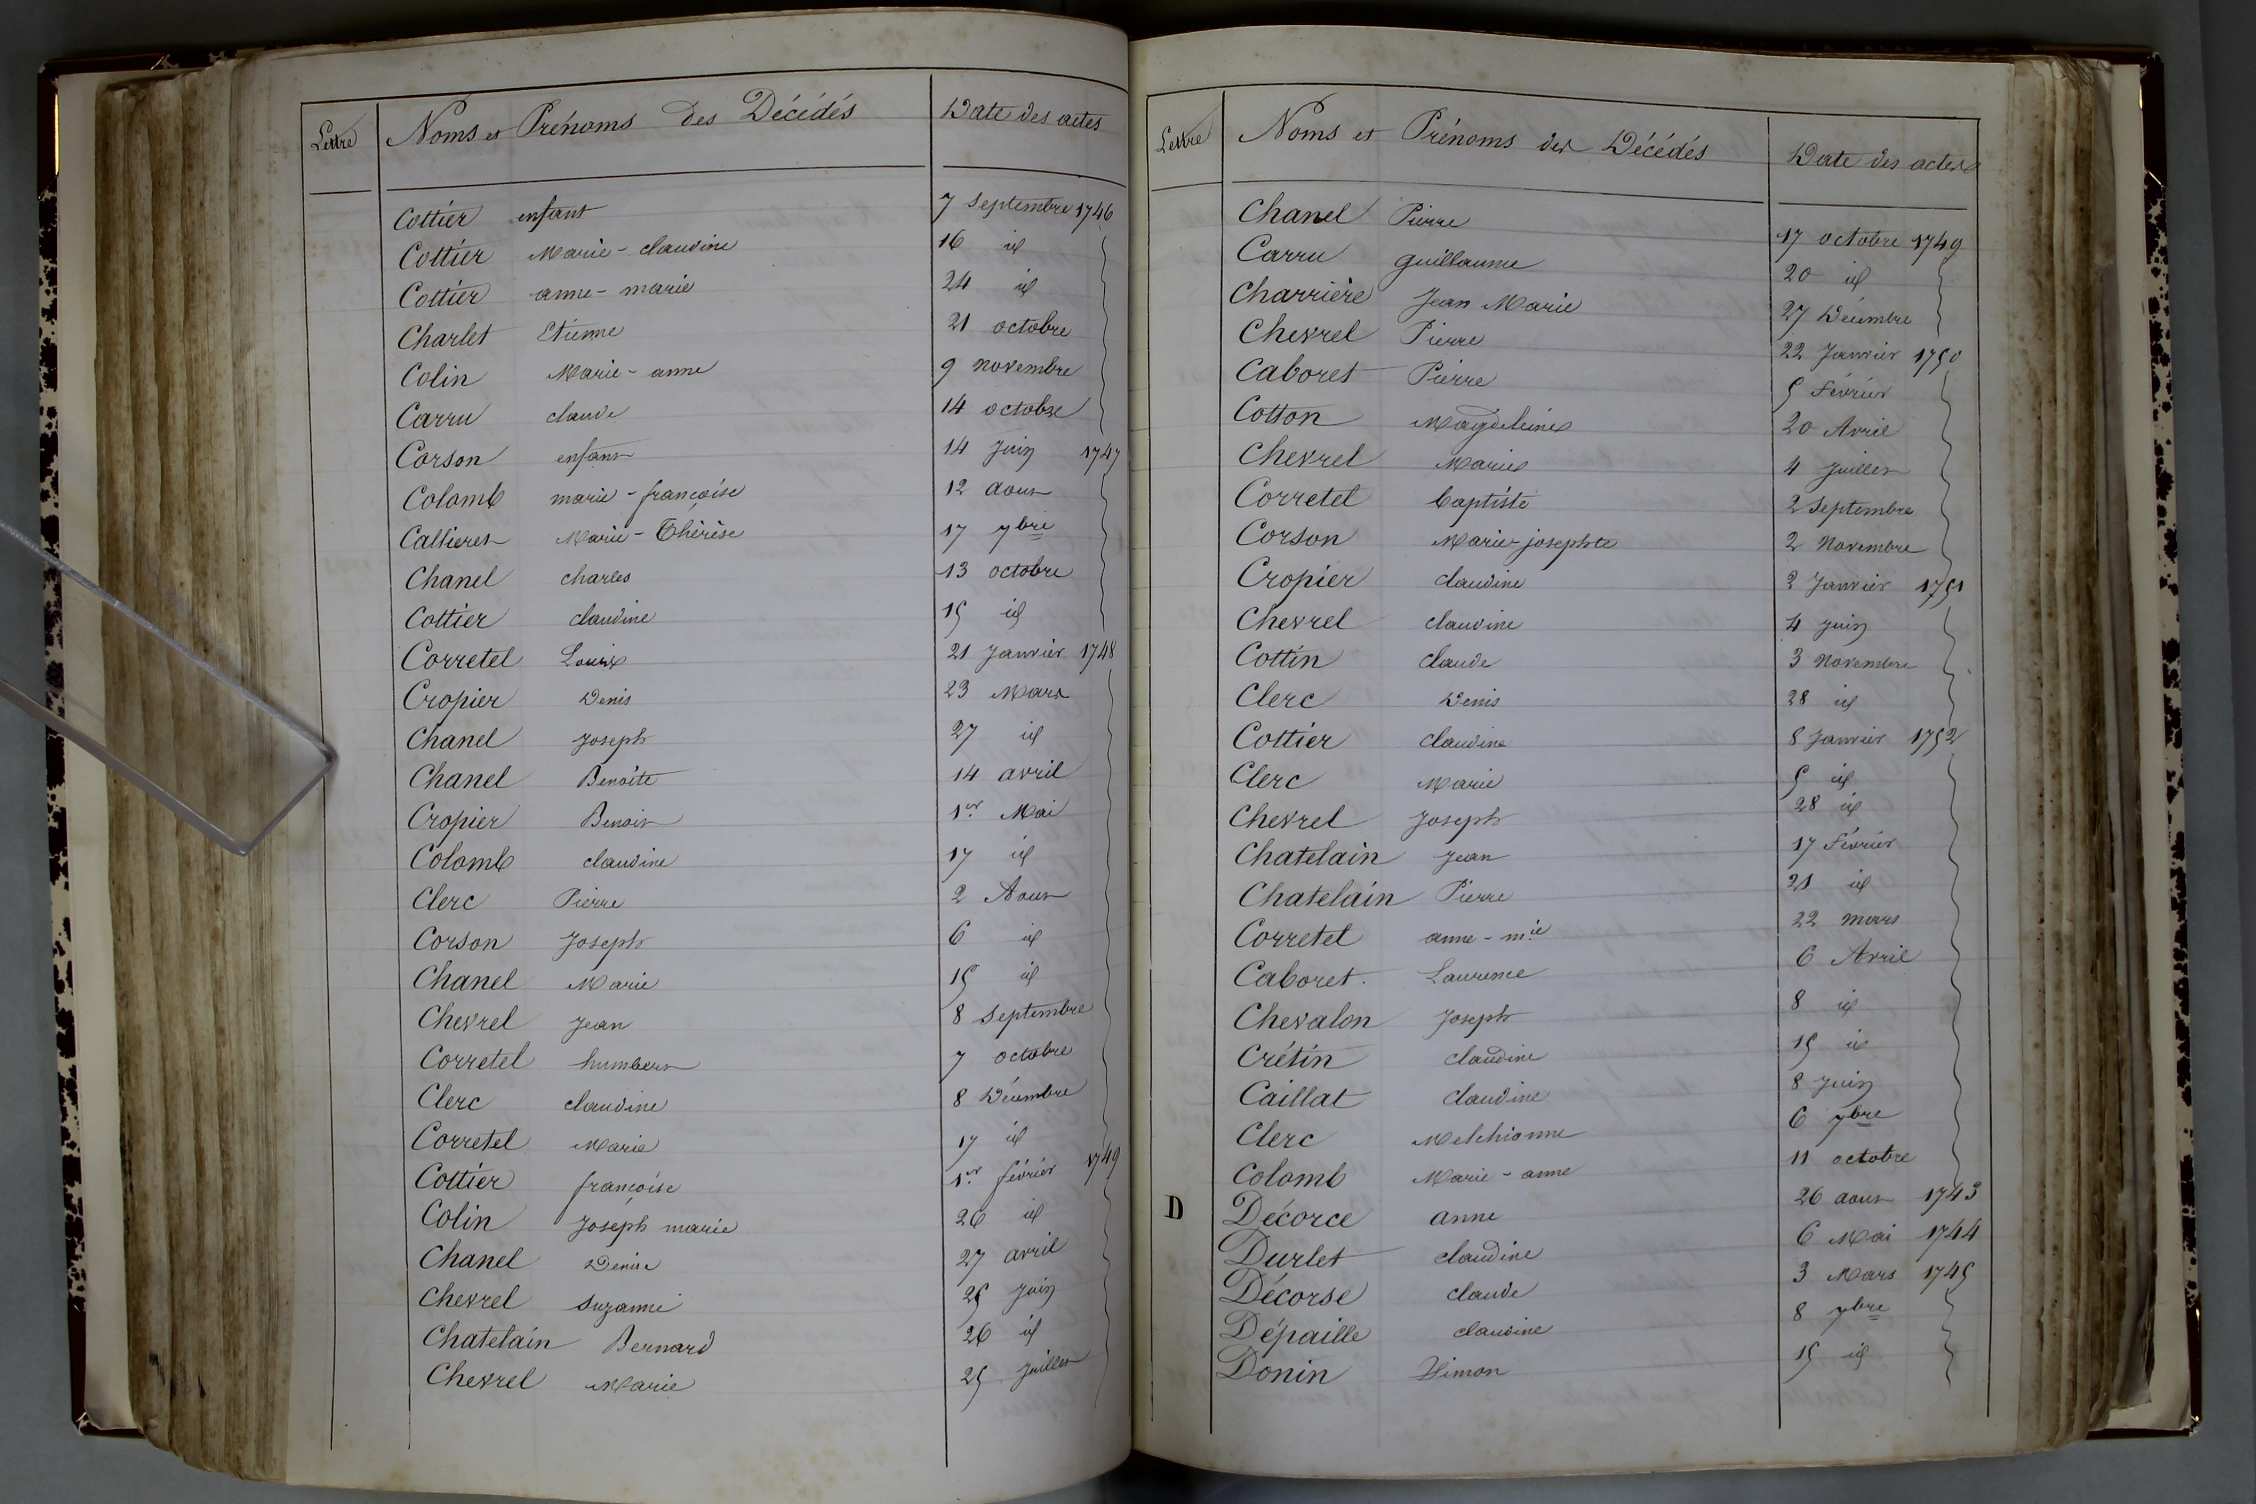 Lettre Noms et Prénoms des Décédés Date des actes
Cottier enfant 7 Septembre 1746
Cottier Marie - claudine 16 id
Cottier anne - marie 24 id
Charlet Etienne 21 octobre
Colin Marie - anne 9 novembre
Carru claude 14 octobre
Corson enfant 14 Juin 1747
Colomb marie - françoise 12 aout
Callieret Marie - Thérèse 17 7bre
Chanel charles 13 octobre
Cottier claudine 15 id
Corretel Louis 21 Janvier 1748
Cropier Denis 23 Mars
Chanel Joseph 27 id
Chanel Benoite 14 avril
Cropier Benoit 1er Mai
Colomb claudine 17 id
Clerc Pierre 2 Aout
Corson Joseph 6 id
Chanel Marie 15 id
Chevrel Jean 8 Septembre
Corretel humbert 7 octobre
Clerc claudine 8 Décembre
Corretel Marie 17 id
Cottier françoise 1er février 1749
Colin Joseph marie 26 id
Chanel Denise 27 avril
Chevrel Suzanne 25 Juin
Chatelain Bernard 26 id
Chevrel Marie 25 Juillet
Lettre Noms et Prénoms des Décédés Date des actes
Chanel Pierre 17 octobre 1749
Carru guillaume 20 id
Charrière Jean Marie 27 Décembre
Chevrel Pierre 22 Janvier 1750
Caboret Pierre 5 Février
Cotton Magdeleine 20 Avril
Chevrel Marie 4 Juillet
Corretel baptiste 2 Septembre
Corson Marie-josephte 2 Novembre
Cropier claudine 2 Janvier 1751
Chevrel claudine 4 Juin
Cottin claude 3 Novembre
Clerc Denis 28 id
Cottier claudine 8 Janvier 1752
Clerc Marie 5 id
Chevrel Joseph 28 id
Chatelain Jean 17 Février
Chatelain Pierre 21 id
Corretel anne - mie 22 mars
Caboret. Laurence 6 Avril
Chevalon Joseph 8 id
Crétin claudine 15 id
Caillat claudine 8 Juin
Clerc Melchionne 6 7bre
Colomb Marie - anne 11 octobre
D Décorce anne 26 aout 1743
Durlet claudine 6 Mai 1744
Décorse claude 3 Mars 1745
Dépaille claudine 8 7bre
Donin Simon 15 id